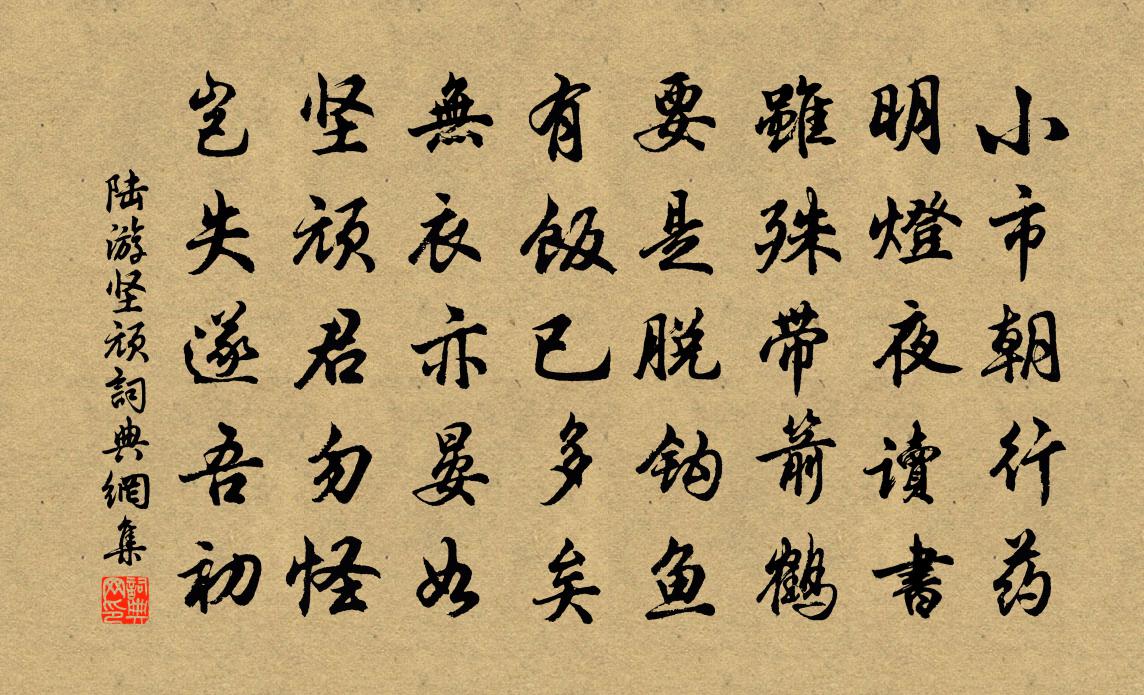 小市朝行药
明燈夜讀書
雖殊带箭鶴
要是脱钩鱼
有飯已多矣
無衣亦晏如
坚顽君勿怪
岂失遂吾初
陆游坚顽詞典網集
詞典
网印